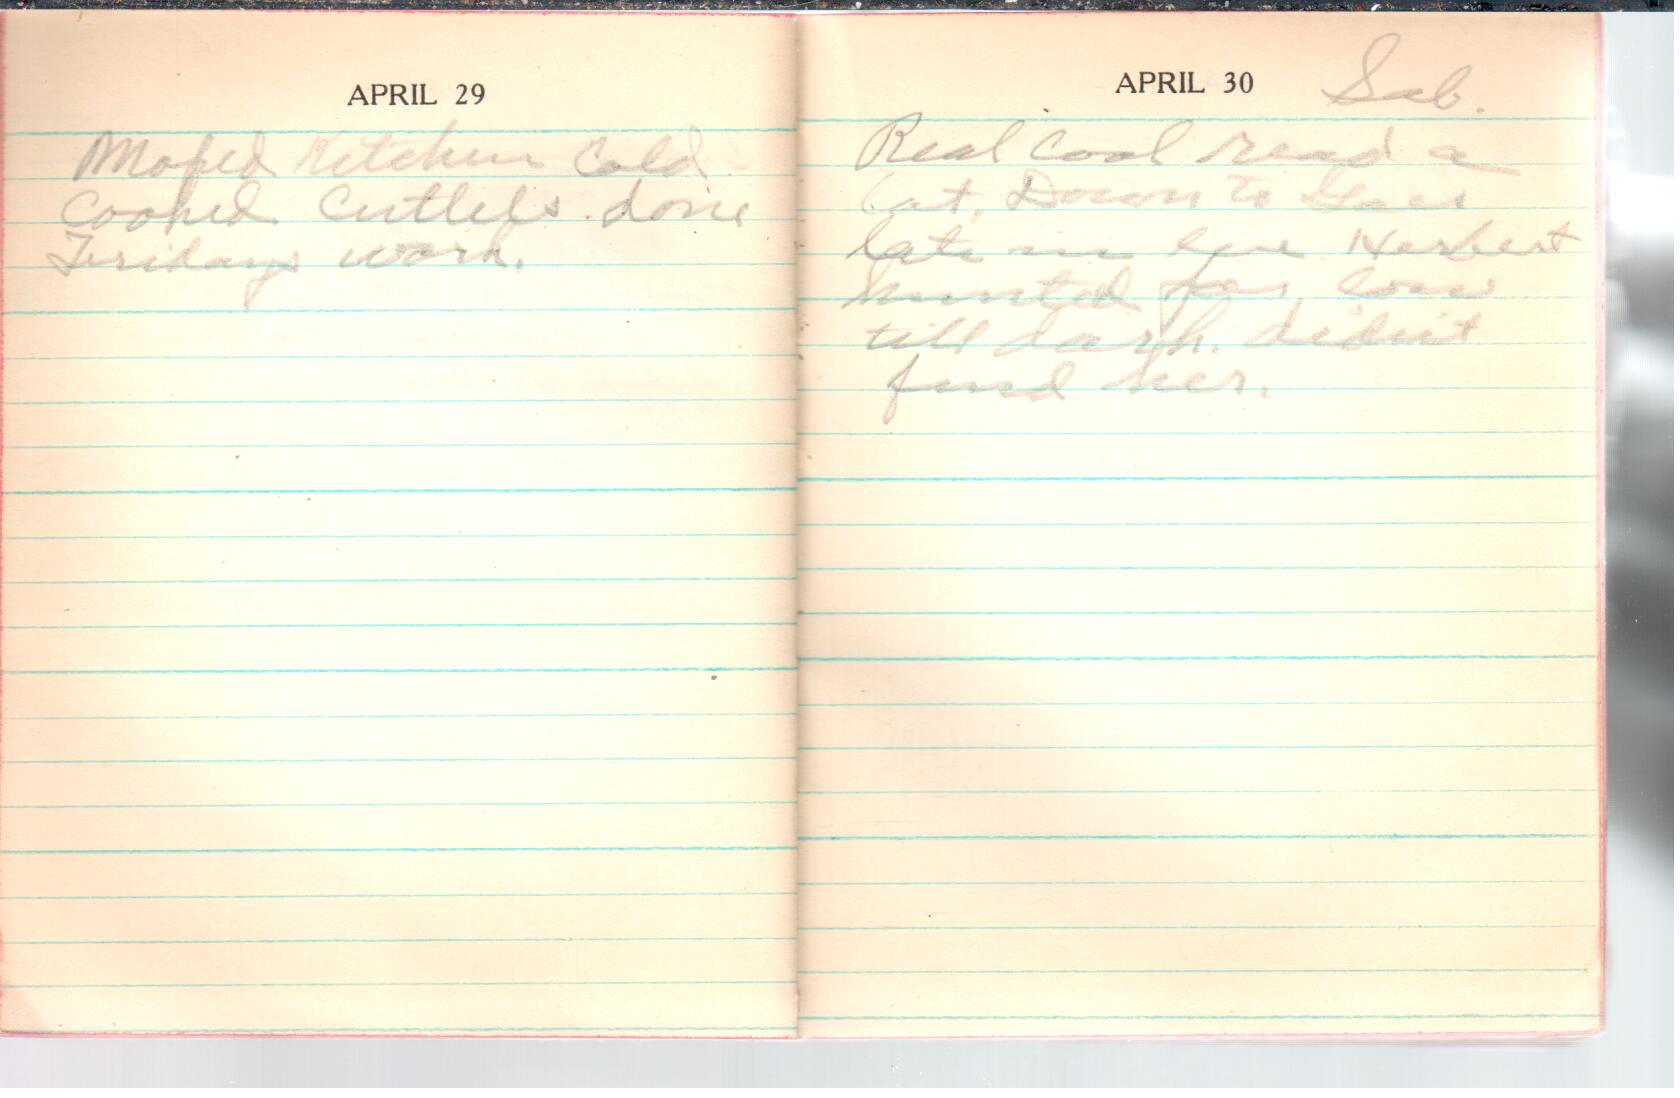 APRIL 29
Moped Kitchen Cold
Cooked Cutlets. done
Fridays work.
APRIL 30 Sab.
Real Cool read a
lot. Down to
late in eve Herbert
hunted for cow
till dark. didn't
find her.